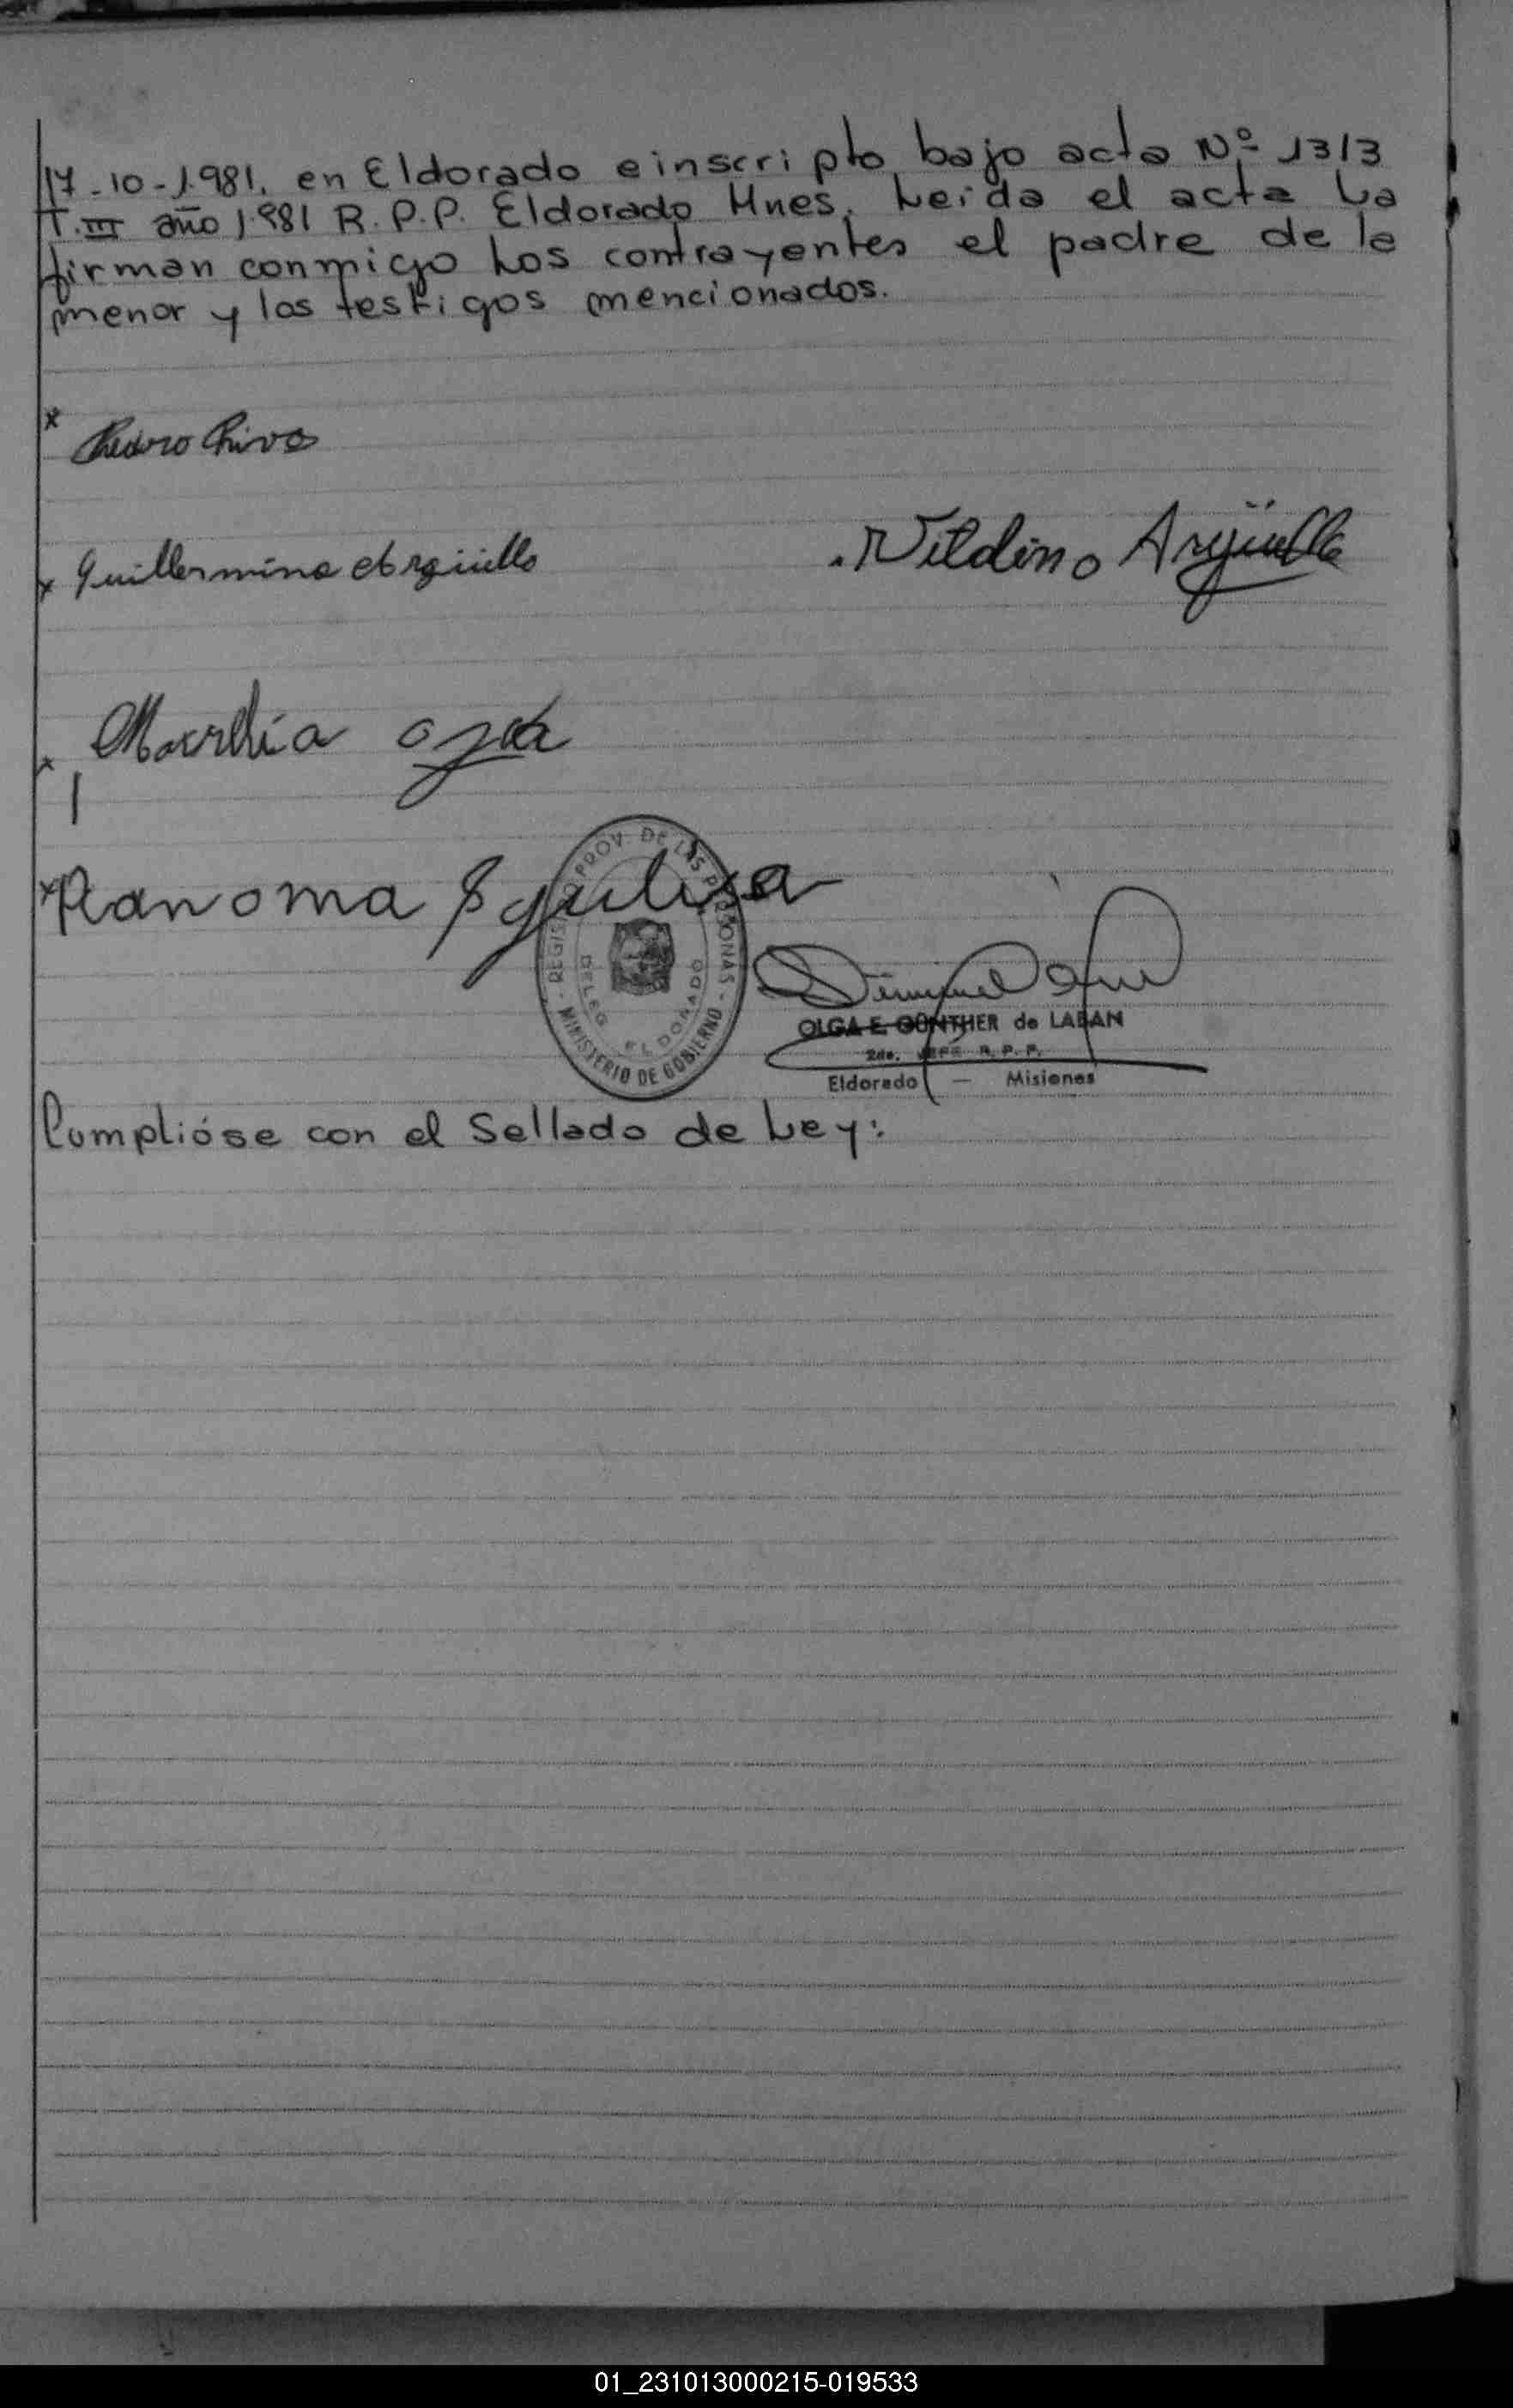 17-10-1.981. en Eldorado e inscripto bajo acta Nº 1313
T.III año 1.981 R.P.P. Eldorado Mnes. Leida el acta La
firman conmigo Los contrayentes el padre de la
menor y los testigos mencionados.
x
Pedro
. Wildino Argüello
x Guillermina Argüello
x
x Ramona
REGISTRO PROV. DE LAS PERSONAS - MINISTERIO DE GOBIERNO -
DELEG. ELDORADO
OLGA E. GÜNTHER de LABAN
2do. JEFE R. P. P.
Eldorado — Misiones
Cumplióse con el Sellado de Ley:
01_231013000215-019533